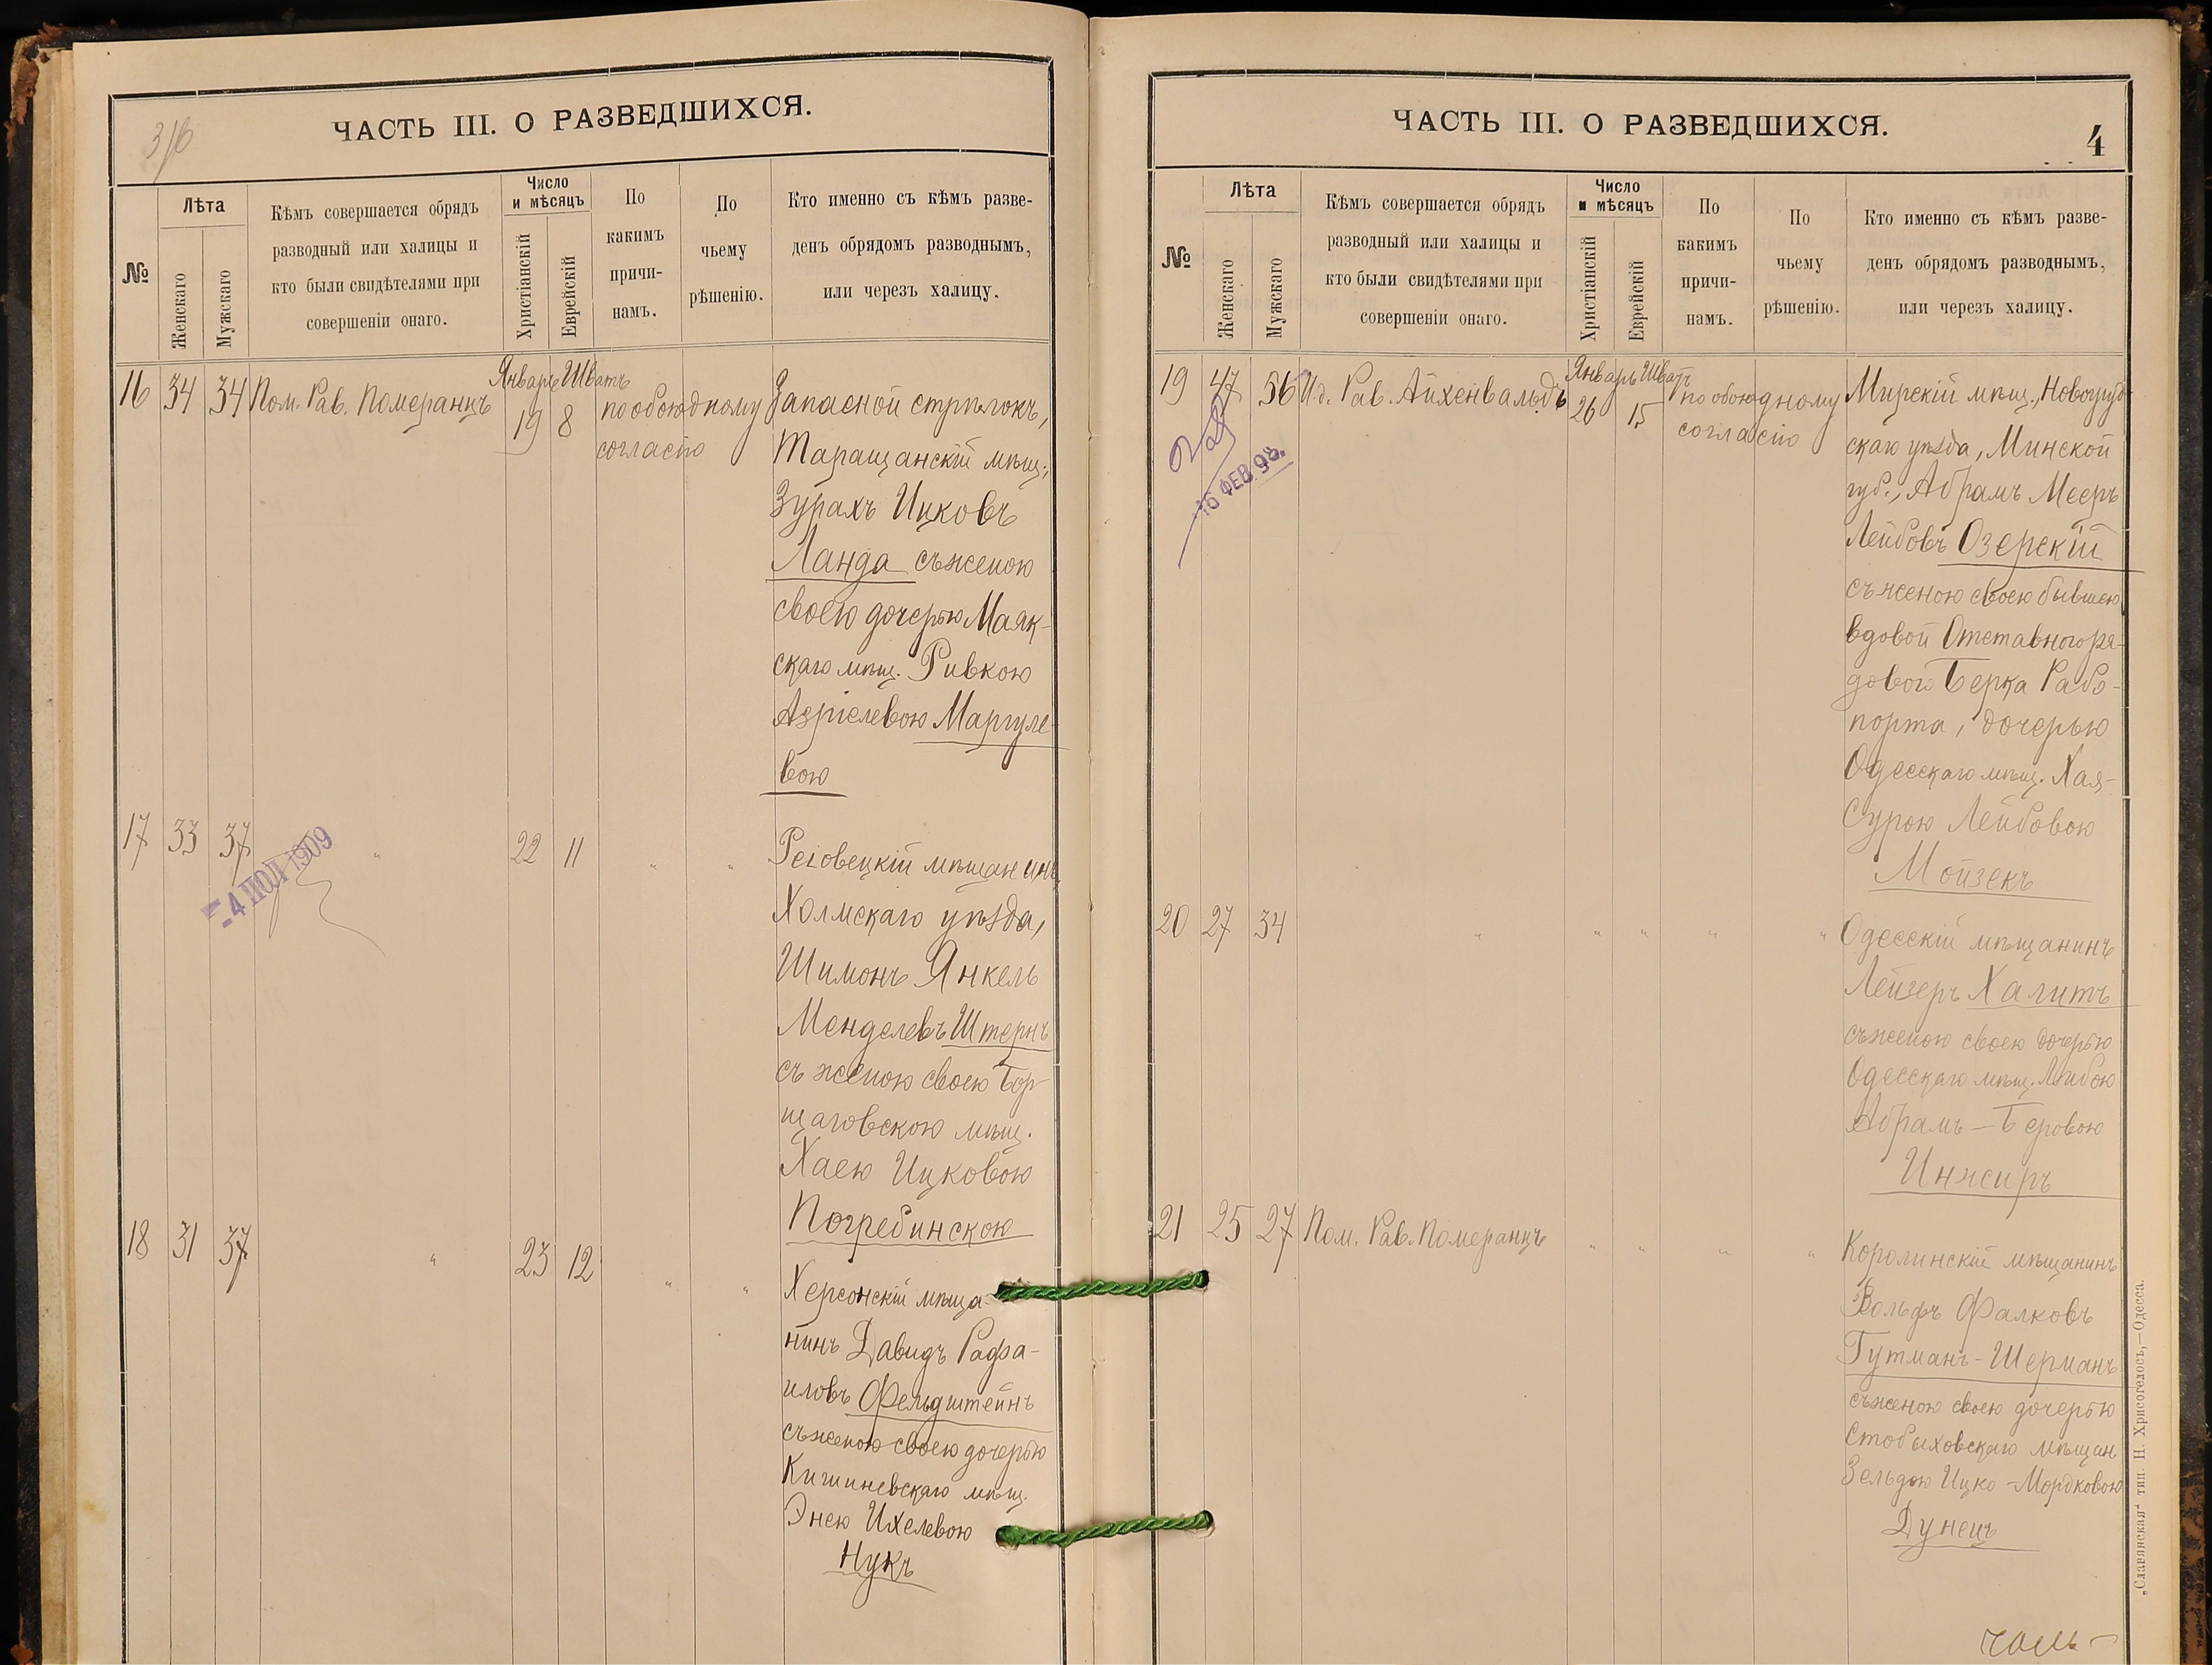 3/6
ЧАСТЬ III. О РАЗВЕДШИХСЯ.
№
Лѣта
Женскаго
Мужскаго
Кѣмъ совершается обрядъ
разводный или халицы и
кто были свидѣтелями при
совершеніи онаго.
Число
и мѣсяцъ
Христіанскій
Еврейскій
По
какимъ
причи-
намъ.
По
чьему
рѣшенію.
Кто именно съ кѣмъ разве-
денъ обрядомъ разводнымъ,
или черезъ халицу.
16 34 34 Пом. Рав. Померанцъ
Январь Шватъ
19 8
по обоюдному
согласію
Запасной стрѣлокъ,
Таращанскій мѣщ.,
Зурахъ Ицковъ
Ланда съ женою
своею дочерью Маяк-
скаго мѣщ. Ривкою
Азріелевою Маргуле-
вою
17 33 37 " 22 11 " "
4 ІЮЛ 1909
Реіовецкій мѣщанинъ,
Холмскаго уѣзда,
Шимонъ Янкель
Менделевъ Штернъ
съ женою своею Бор-
щаговскою мѣщ.
Хаею Ицковою
Погребинскою
18 31 37 " 23 12 " "
Херсонскій мѣща-
нинъ Давидъ Рафа-
иловъ Фельдштейнъ
съ женою своею дочерью
Кишиневскаго мѣщ.
Энею Ихелевою
Нукъ
ЧАСТЬ III. О РАЗВЕДШИХСЯ.
4
№
Лѣта
Женскаго
Мужскаго
Кѣмъ совершается обрядъ
разводный или халицы и
кто были свидѣтелями при
совершеніи онаго.
Число
и мѣсяцъ
Христіанскій
Еврейскій
По
какимъ
причи-
намъ.
По
чьему
рѣшенію.
Кто именно съ кѣмъ разве-
денъ обрядомъ разводнымъ,
или черезъ халицу.
19 47 56 И.д. Рав. Айхенвальдъ
Январь Шватъ
26 15
по обоюдному
согласію
16 ФЕВ 98.
Мирскій мѣщ., Новогруд-
скаго уѣзда, Минской
губ., Абрамъ Мееръ
Лейбовъ Озерскій
съ женою своею бывшею
вдовой Отставного ря-
дового Берка Рабо-
порта, дочерью
Одесскаго мѣщ. Хая-
Сурою Лейбовою
Мойзекъ
20 27 34 " " " " "
Одесскій мѣщанинъ
Лейзеръ Халитъ
съ женою своею дочерью
Одесскаго мѣщ. Либою
Абрамъ-Беровою
Инжиръ
21 25 27 Пом. Рав. Померанцъ " " " "
Королинскій мѣщанинъ
Вольфъ Фалковъ
Гутманъ-Шерманъ
съ женою своею дочерью
Стобыховскаго мѣщан
Зельдою Ицко-Мордковою
Дунецъ
„Славянская“ тип. Н. Хрисогелосъ,—Одесса.